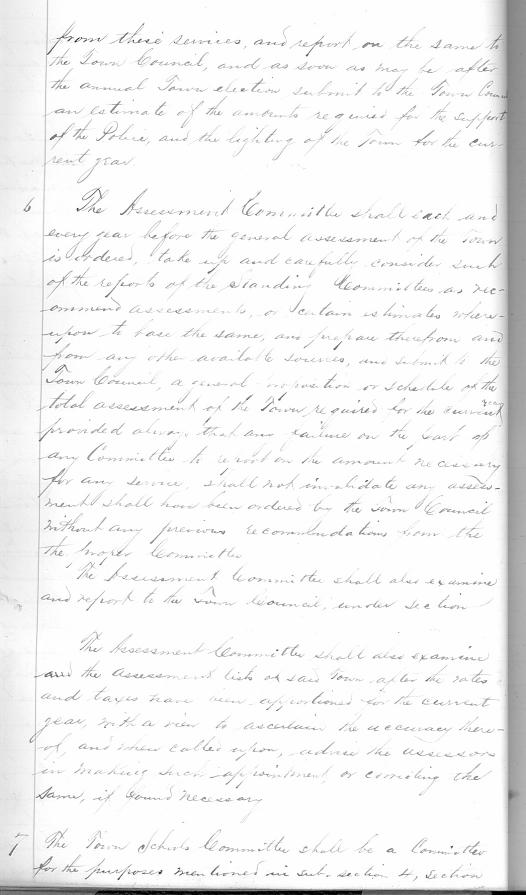 from these services, and report on the same to
the Town Council, and as soon as may be, after
the annual Town election submit to the Town Council
an estimate of the amounts required for the support
of the Police, and the lighting of the Town for the cur-
rent year.
6 The Assessment Committee shall each and
every year before the general assessment of the Town
is ordered, take up and carefully consider such
of the reports of the Standing Committees as rec-
ommend assessments, or certain estimates where-
upon to base the same, and prepare therefrom and
from any other available sources, and submit to the
Town Council, a general proposition or schedule of the
total assessment of the Town required for the current year
provided always that any failure on the part of
any Committee to report on the amount necessary
for any service, shall not invalidate any assess-
ment shall have been ordered by the Town Council
without any previous recommendations from the
the proper Committee
The Assessment Committee shall also examine
and report to the Town Council, under section
The Assessment Committee shall also examine
and the assessment lists of said Town after the rates
and taxes have been apportioned for the current
year, with a view to ascertain the accuracy there-
of, and when called upon, advise the assessors
in making such appointment, or correcting the
same, if found necessary
7 The Town Schools Committee shall be a Committee
for the purposes mentioned in sub-section 4, section